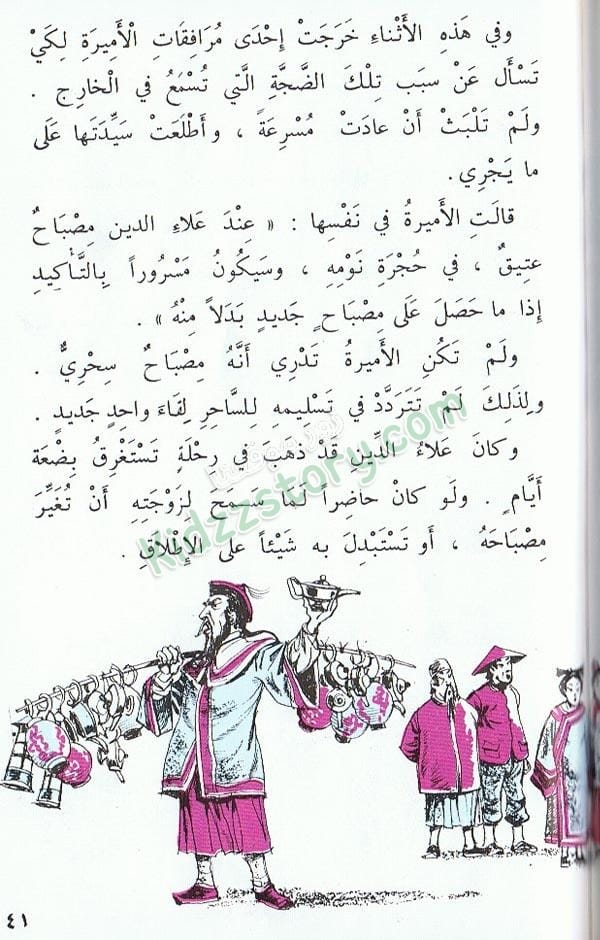 وفي هَذِهِ الأَثْناءِ خَرَجَتْ إِحْدَى مُرَافِقَاتِ الْأَمِيرَةِ لِكَيْ
تَسْأَل عَنْ سبَب تِلْكَ الضَّجَّةِ الَّتي تُسْمَعُ في الْخَارِجِ .
ولَمْ تَلْبَثْ أَنْ عادَتْ مُسْرِعَةً ، وأَطْلَعَتْ سَيِّدَتَها عَلَى
ما يَجْرِي .
قالَتِ الأَميرةُ في نَفْسِها : « عِنْدَ عَلاءِ الدين مِصْبَاحٌ
عتِيقٌ ، في حُجْرَةِ نَوْمِهِ ، وسَيكُونُ مَسْرُوراً بِالتَّأْكِيدِ
إِذا ما حَصَلَ عَلَى مِصْبَاحٍ جَديدٍ بَدَلاً مِنْهُ » .
ولَمْ تَكُنِ الأَميرةُ تَدْرِي أَنَّهُ مِصْبَاحٌ سِحْرِيٌّ .
ولِذَلِكَ لَمْ تَتَرَدَّدْ في تَسْليمِهِ لِلسَّاحِرِ لِقَاءَ واحِدٍ جَديدٍ .
وكانَ عَلاءُ الدِّينِ قَدْ ذهَبَ في رِحْلَةٍ تَسْتَغْرِقُ بِضْعَةَ
أَيَّامٍ . ولَو كانَ حاضِراً لَمَا سَمَحَ لِزَوْجَتِهِ أَنْ تُغَيِّرَ
مِصْبَاحَهُ ، أَو تَسْتَبْدِلَ به شَيْئاً على الإِطْلَاقِ .
Kidzzstory.com
٤١